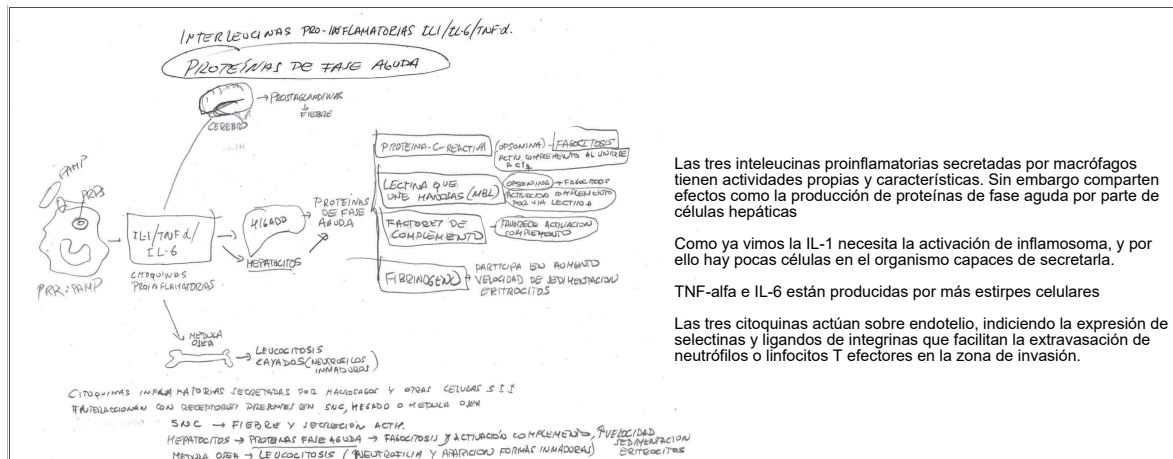 INTERLEUCINAS PRO-INFLAMATORIAS IL1/IL-6/TNF-α.
PROTEÍNAS DE FASE AGUDA
→ PROSTAGLANDINAS
↓
FIEBRE
CEREBRO
PAMP
PRRS
PRR:PAMP
IL-1/TNFα/
IL-6
CITOQUINAS
PROINFLAMATORIAS
HIGADO
HEPATOCITOS
PROTEINAS
DE FASE
AGUDA
PROTEINA-C-REACTIVA (OPSONINA) - FAGOCITOSIS
ACTIV COMPLEMENTO AL UNIRSE
A C1q
LECTINA QUE
UNE MANOSAS (MBL)
OPSONINA → FAGOCITOSIS
ACTIVACION COMPLEMENTO
POR VIA LECTINA
FACTORES DE
COMPLEMENTO
FAVORECE ACTIVACION
COMPLEMENTO
FIBRINOGENO
PARTICIPA EN AUMENTO
VELOCIDAD DE SEDIMENTACION
ERITROCITOS
MEDULA
OSEA
→ LEUCOCITOSIS
CAYADOS (NEUTROFILOS
INMADUROS)
CITOQUINAS INFLAMATORIAS SECRETADAS POR MACROFAGOS Y OTRAS CELULAS S I I
INTERACCIONAN CON RECEPTORES PRESENTES EN SNC, HIGADO O MEDULA OSEA
SNC → FIEBRE Y SECRECIÓN ACTH.
HEPATOCITOS → PROTEINAS FASE AGUDA → FAGOCITOSIS Y ACTIVACIÓN COMPLEMENTO, ↑VELOCIDAD
SEDIMENTACION
ERITROCITOS
MEDULA OSEA → LEUCOCITOSIS (NEUTROFILIA Y APARICION FORMAS INMADURAS)
Las tres inteleucinas proinflamatorias secretadas por macrófagos
tienen actividades propias y características. Sin embargo comparten
efectos como la producción de proteínas de fase aguda por parte de
células hepáticas
Como ya vimos la IL-1 necesita la activación de inflamosoma, y por
ello hay pocas células en el organismo capaces de secretarla.
TNF-alfa e IL-6 están producidas por más estirpes celulares
Las tres citoquinas actúan sobre endotelio, indiciendo la expresión de
selectinas y ligandos de integrinas que facilitan la extravasación de
neutrófilos o linfocitos T efectores en la zona de invasión.